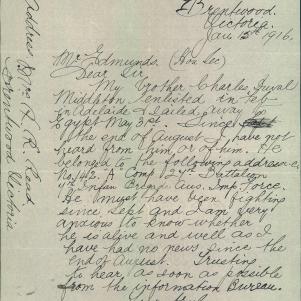 Brentwood.
Victoria.
Jan 15th 1916.
Mr Edmunds. (Hon Sec)
Dear Sir,
My brother Charles Duval
Middleton enlisted in Feb
in Adelaide & sailed away to
Egypt May 31st. Since
the end of August I have not
heard from him or of him. He
belonged to the following address
No 142. "A" Comp 27th Battalion
7th Infan Brigade Aus. Imp. Force.
He must have been fighting
since Sept and I am very
anxious to know whether
he is alive and well as I
have had no news since the
end of August. Trusting
to hear, as soon as possible
from the information Bureau.
Address Mrs A. R. Read
Brentwood Victoria